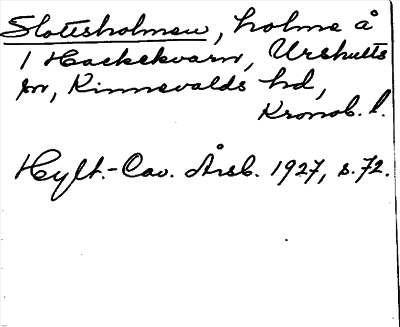 Slottsholmen, holme å
1 Hackekvarn, Urshults
sn, Kinnevalds hd,
Kronob. l.
Hylt.-Cav. Årsb. 1927, s. 72.